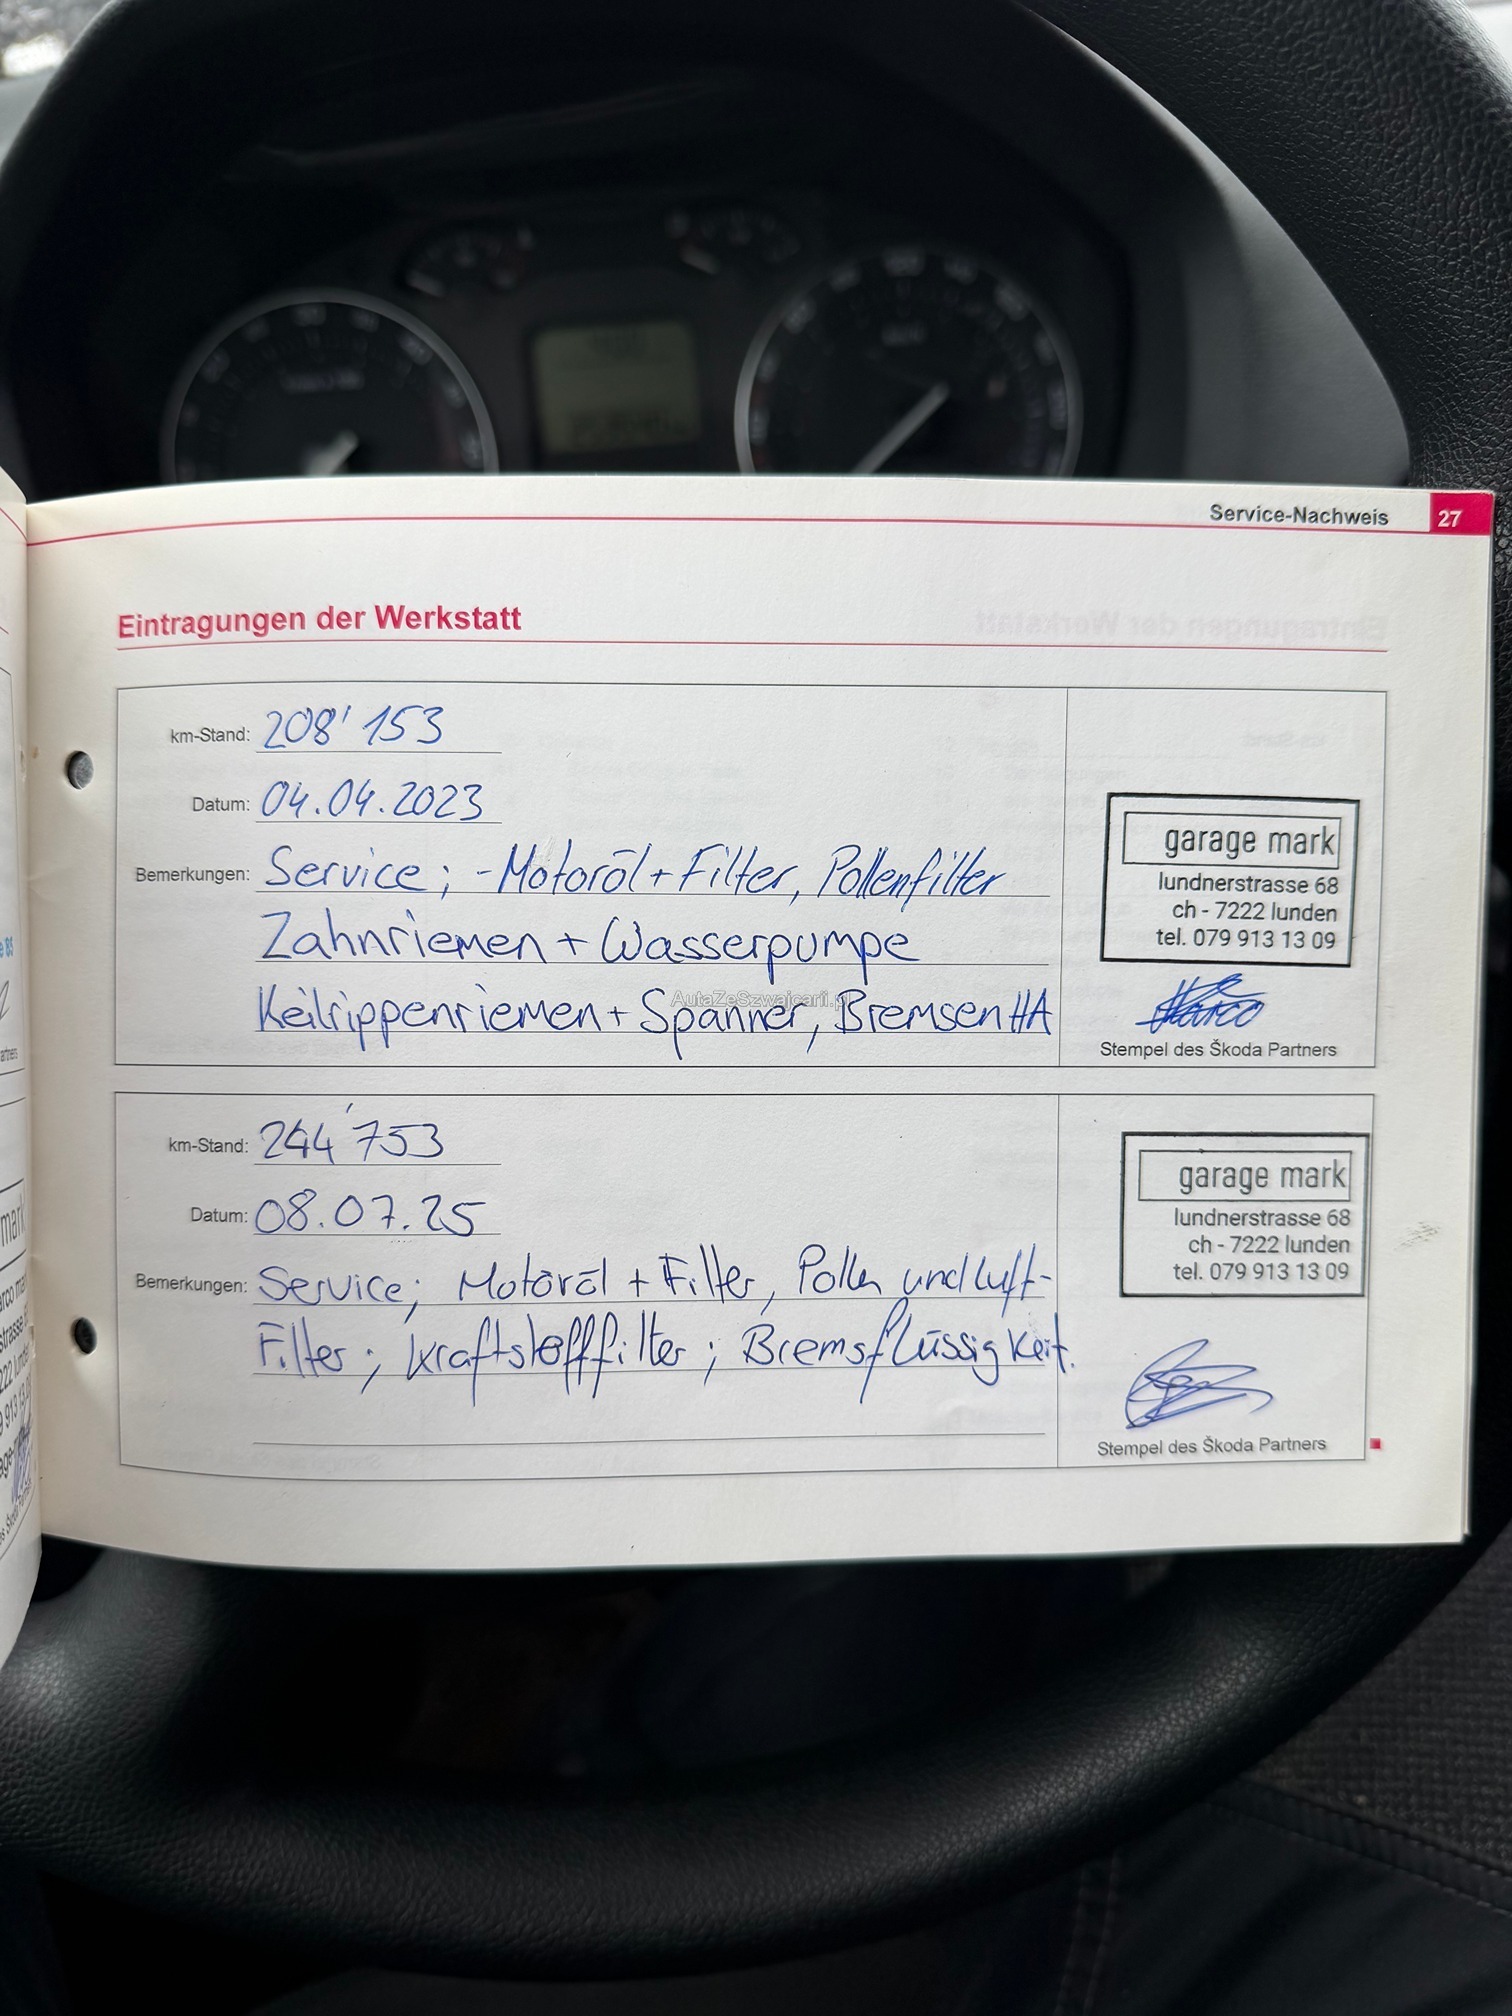 Service-Nachweis 27
Eintragungen der Werkstatt
km-Stand: 208' 153
Datum: 04.04.2023
Bemerkungen: Service; -Motoröl + Filter, Pollenfilter
Zahnriemen + Wasserpumpe
Keilrippenriemen + Spanner, Bremsen HA
garage mark
lundnerstrasse 68
ch - 7222 lunden
tel. 079 913 13 09
Marco
Stempel des Škoda Partners
AutaZeSzwajcarii.pl
km-Stand: 244'753
Datum: 08.07.25
Bemerkungen: Service; Motoröl + Filter, Pollen und Luft-
Filter; Kraftstofffilter; Bremsflüssigkeit.
garage mark
lundnerstrasse 68
ch - 7222 lunden
tel. 079 913 13 09
Stempel des Škoda Partners